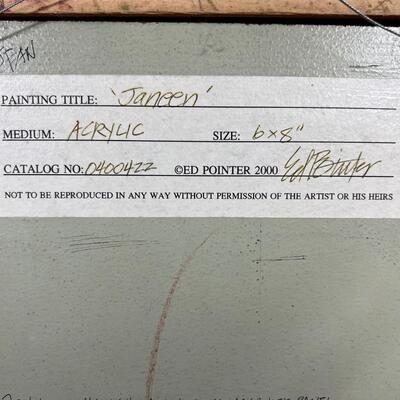 PAINTING TITLE: 'Janeen'
MEDIUM: ACRYLIC SIZE: 6x8"
CATALOG NO: 0400422 ©ED POINTER 2000 Ed Pointer
NOT TO BE REPRODUCED IN ANY WAY WITHOUT PERMISSION OF THE ARTIST OR HIS HEIRS